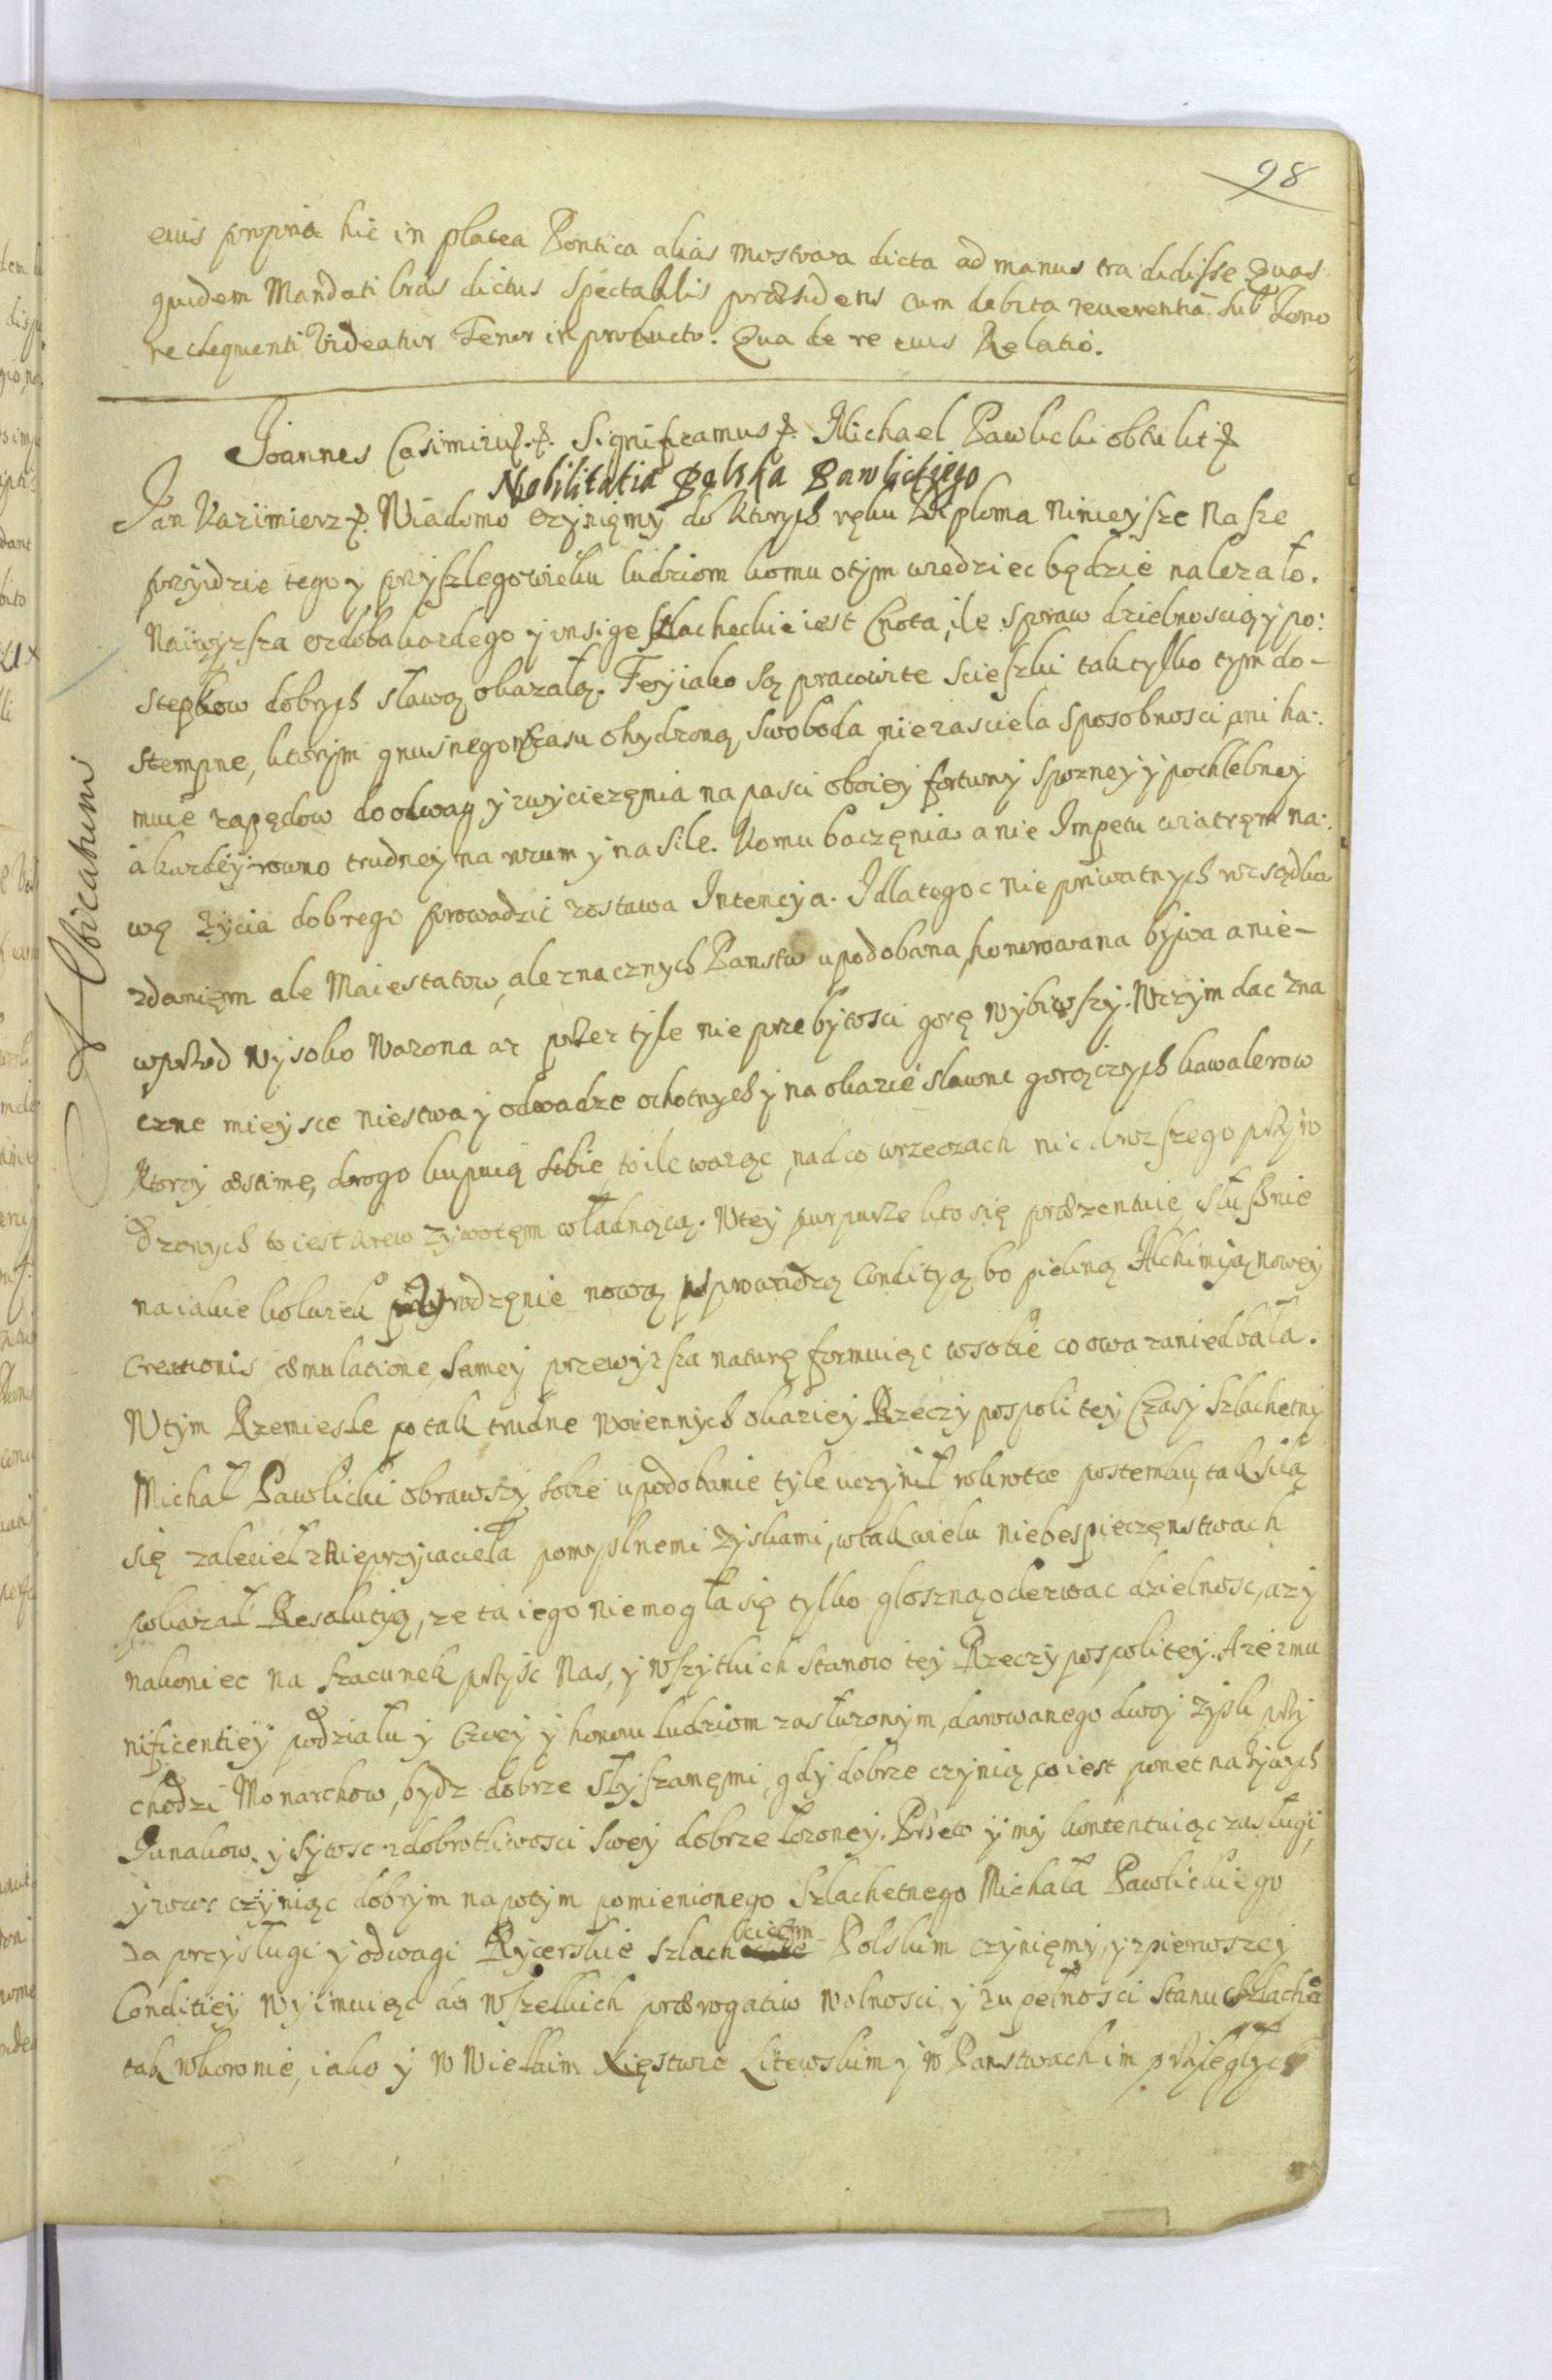 98
euis propria hic in platea Pontica alias Mostowa dicta ad manus tradidisse Quas
quidem Mandati bras dictus Spectabilis præsidens cum debita reuerentia sub Teno
re sequenti Videatur Tenor in producto. Qua de re euis Relatio.
Joannes Casimirus. Significamus Michael Pawlicki obtulit
Nobilitatia Polska Pawlickiego
Jan Kazimierz Wiadomo czynięmy do ktorych ręku Diploma Ninieysze Nasze
przyidzie tego y przyszlego wieku ludziom komu otym wiedziec będzie nalezało.
Naiwyzsza ozdoba kazdego y insige szlacheckie iest Cnota, ile spraw dzielnoscią y po:
stepkow dobrych sławą okazałą. Tey iako są pracowite scieszki tak tylko tym do-
stempne, ktorym gnusnego wczasu ohydzona swoboda nie zasciela sposobnosci, ani ha:
muie zapędow do odwag y zwyciezęnia napasci oboiey fortuny sprzney y pochlebney
a kazdey rowno trudney na rozum y na sile. Komu baczęnia a nie Impetu wiatręm na:
wę życia dobrego prowadzić zostawa Intencya. I dlatego c nie priwatnych rozsądku
zdanięm ale Maiestatow, ale znacznych Panstw upodobana, honorowana bywa a nie-
wprzod wysoko wazona az przez tyle nie przebytosci gorę wybiwszy. Wczym dac zna
czne mieysce męstwa y odwadze ochotnych y na okazie sławne gorączych kawalerow
Ktorzy æstimę, drogo kupuią sobie, to ile waząc, nad co w rzeczach nic drozszego przyro
dzonych to iest krew zywotęm władnącą. W tey purpurze kto się præzentuie słusznie
na iakie koluzek urodzęnie nową wprowadzą Conditią, bo piekną Alchimią nowey
Creationis æmulatione, samey przewyzsza naturę formuiąc w sobie co owa zaniedbała.
W tym Rzemiesle po tak trudne woiennych okaziey Rzeczy pospolitey Czasy Szlachetny
Michał Pawlicki obrawszy sobie upodobanie tyle uczynił w krotce postemku, tak siłą
się zalecieł z Nieprzyiaciela pomyslnemi zyskami, w tak wielu niebespieczęnstwach
pokazał Resolutią, ze ta iego nie mogła się tylko głoszną oderwac dzielnosc, a zy
nakoniec na szacunek przyśc Nas, y wszytkich Stanow tey Rzeczy pospolitey. A ze z mu
nificentiey podziału y Czci y honoru ludziom zasłuzonym, darowanego dwoy zysk przy
chodzi Monarchow, bydz dobrze słyszanęmi, gdy dobrze czynią, co iest ponet na zywych
Junakow. y sytosc z dobrotliwosci swey dobrze łozoney. Przeto y my kontentuiąc zasługi,
y wzor czyniąc dobrym napotym pomienionego Szlachetnego Michała Pawlickiego
za przysługi y odwagi Rycerskie szlachcicęm Polskim czynięmy, y z pierwszey
Conditiey wyimuiąc do wszelkich prærogatiw wolnosci y zupełnosci Stanu Szlach:
tak w koronie, iako y w Wielkim Xięstwie Litewskim y w Panstwach im przyległych
Nobilitatum